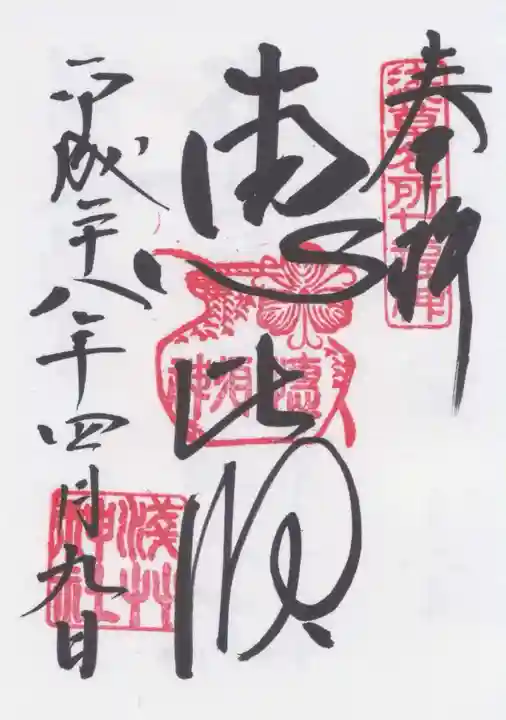 奉拝
浅草名所七福神
恵比須
恵比須神
浅草神社
平成二十八年四月九日